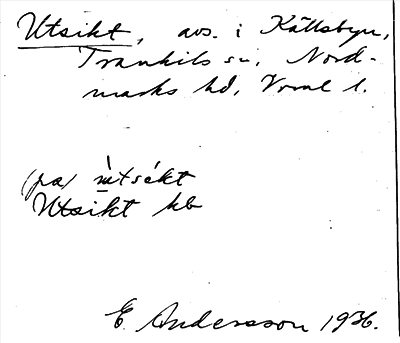 Utsikt, avs. i Kättsbyn,
Trankils sn, Nord-
marks hd, Vrml l.
(pa) ùtsíkt
Utsikt kb
E. Andersson 1936.